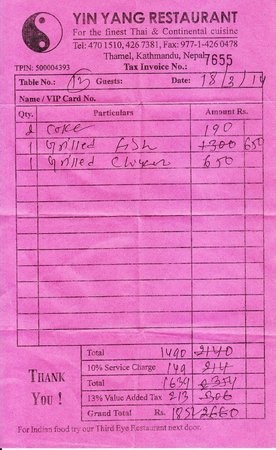 YIN YANG RESTAURANT
For the finest Thai & Continental cuisine
Tel: 470 1510, 426 7381, Fax: 977-1-426 0478
Thamel, Kathmandu, Nepal
TPIN: 500004393 Tax Invoice No.: 7655
Table No.: 12 Guests: Date: 18/3/14
Name / VIP Card No.
Qty. Particulars Amount Rs.
2 Coke 190
1 Grilled Fish 1300 650
1 Grilled Chicken 650
Total 1490 2140
10% Service Charge 149 214
Total 1639 2354
13% Value Added Tax 213 306
Grand Total Rs. 1852 2660
THANK YOU !
For Indian food try our Third Eye Restaurant next door.